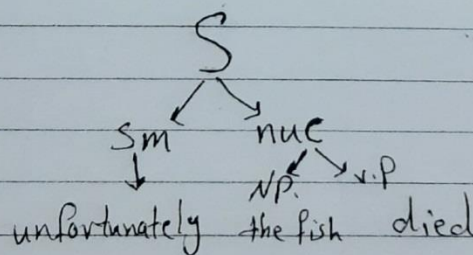 S
sm nuc
NP. v.p
unfortunately the fish died